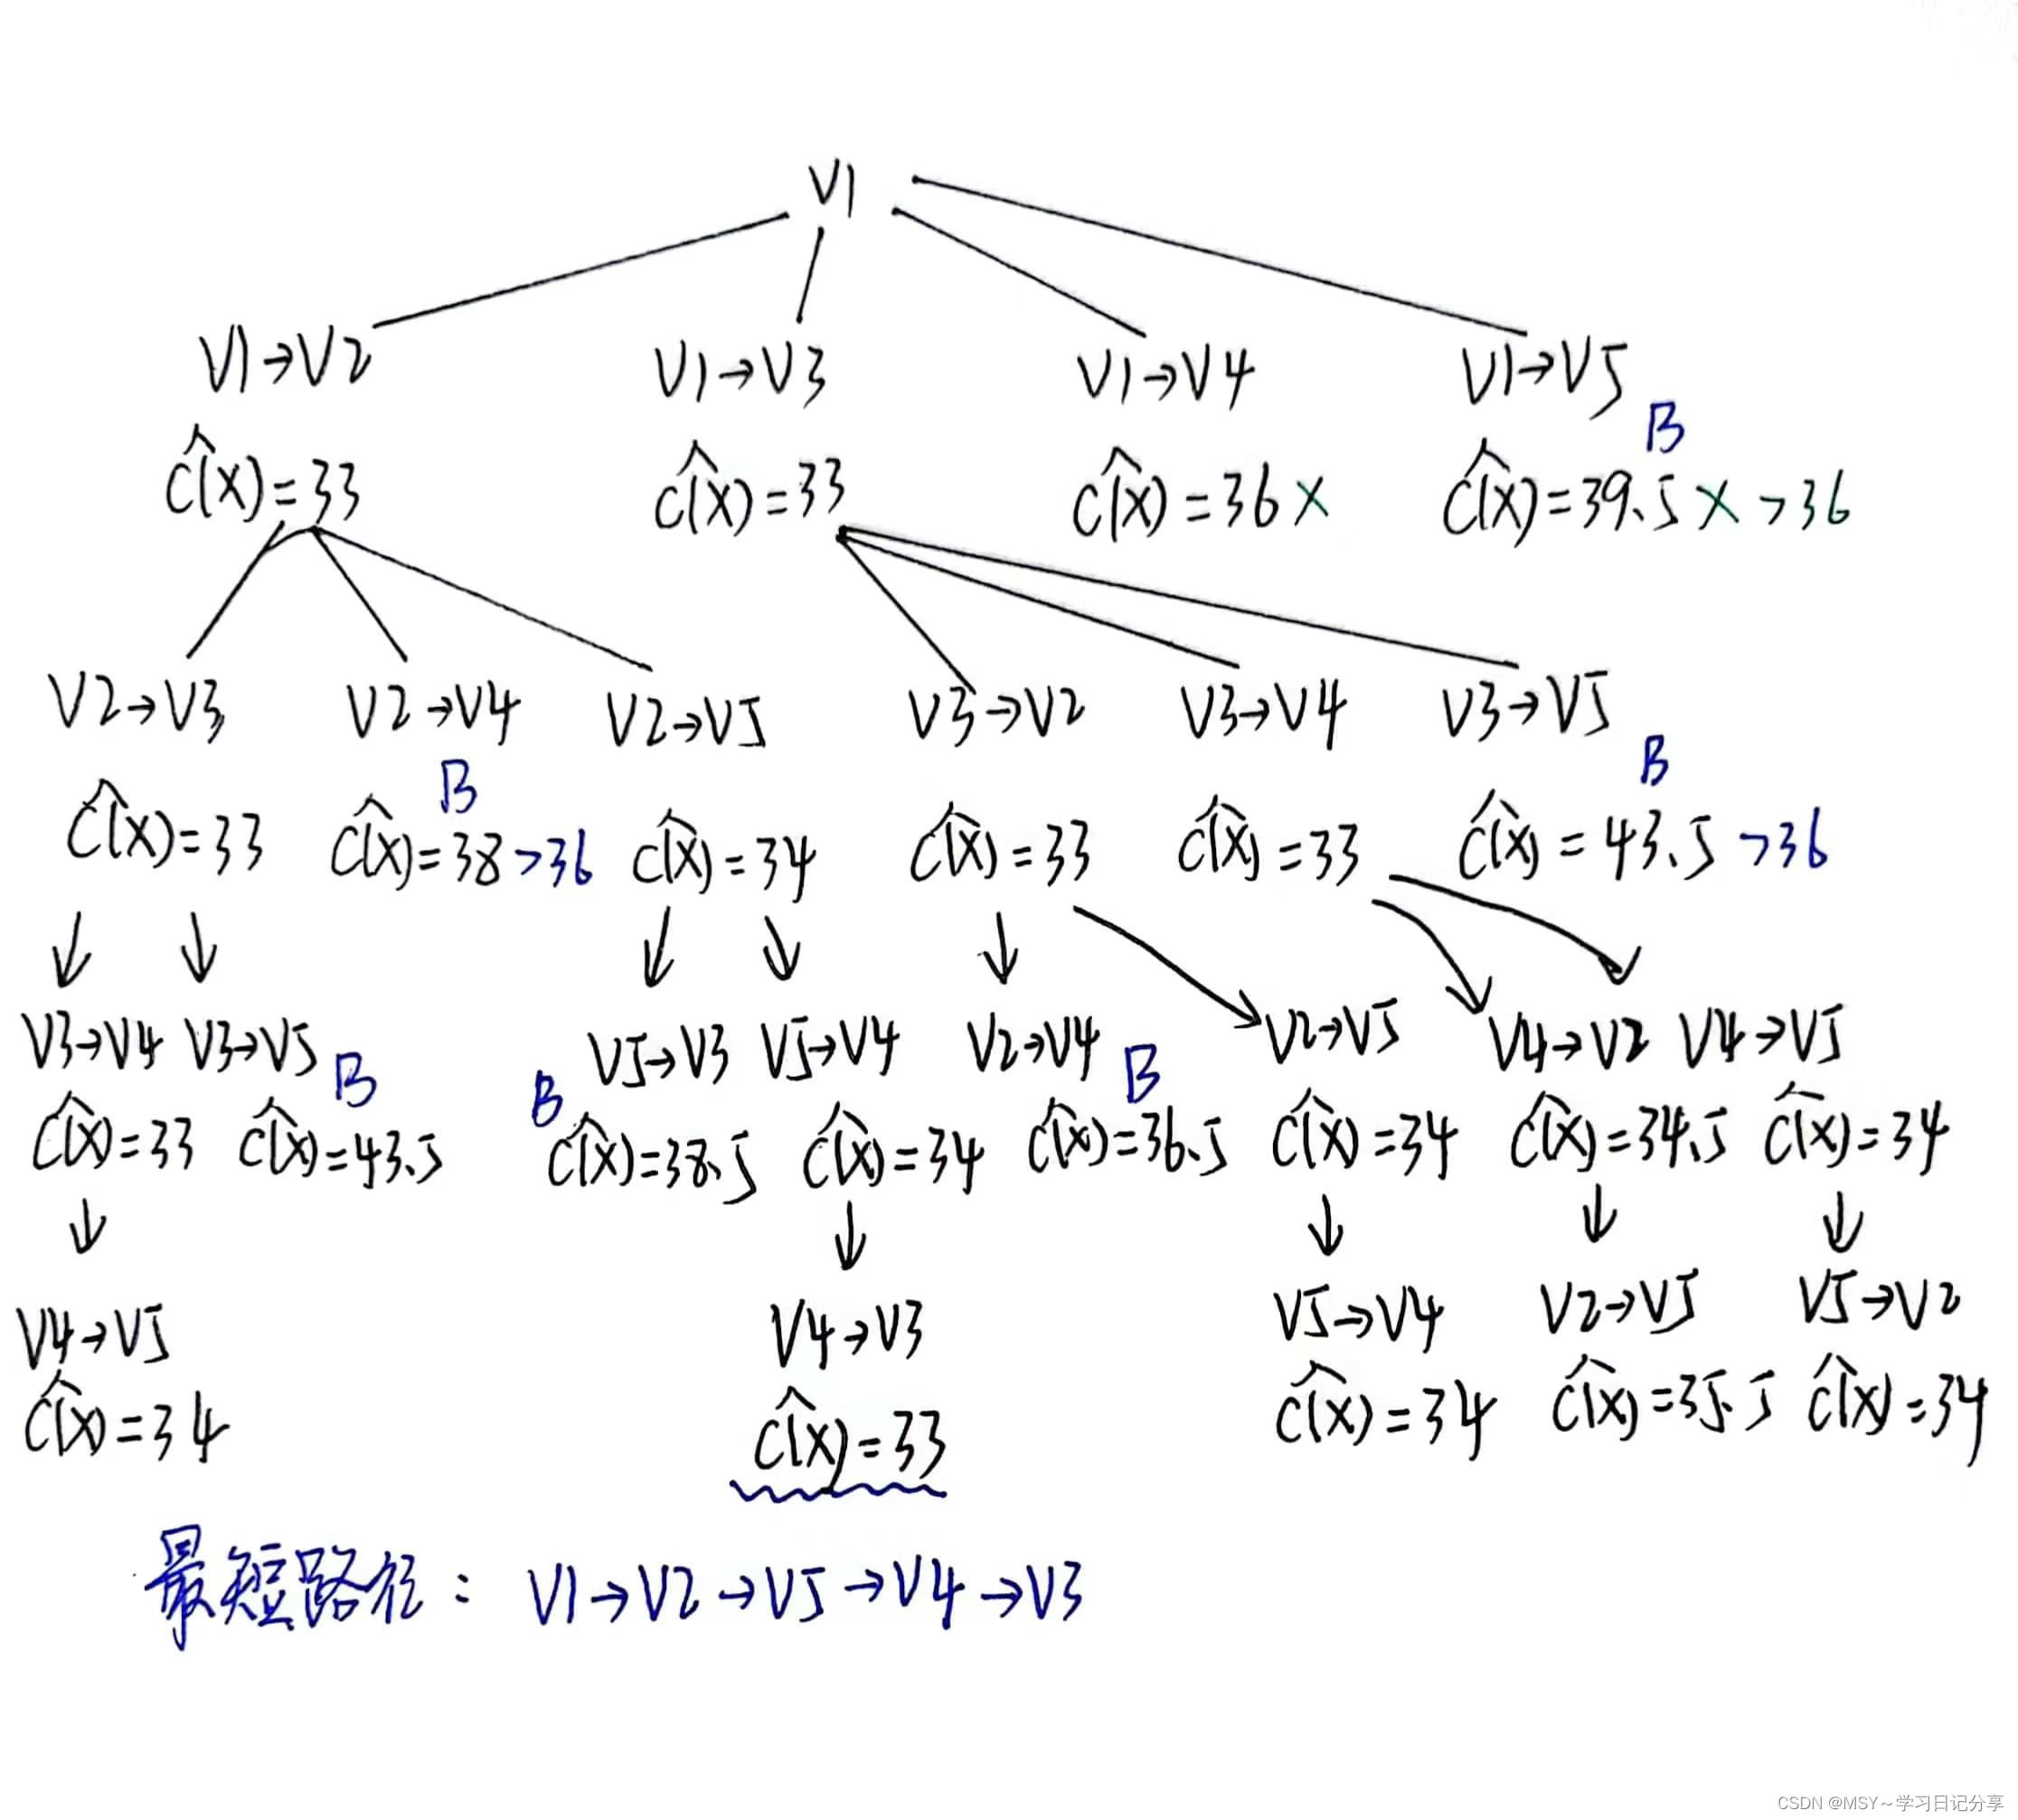 V1
V1→V2 V1→V3 V1→V4 V1→V5
B
Ĉ(X)=33 Ĉ(X)=33 Ĉ(X)=36 × Ĉ(X)=39.5 × >36
V2→V3 V2→V4 V2→V5 V3→V2 V3→V4 V3→V5
B B
Ĉ(X)=33 Ĉ(X)=38>36 Ĉ(X)=34 Ĉ(X)=33 Ĉ(X)=33 Ĉ(X)=43.5 >36
V3→V4 V3→V5 V5→V3 V5→V4 V2→V4 V2→V5 V4→V2 V4→V5
B B B
Ĉ(X)=33 Ĉ(X)=43.5 Ĉ(X)=38.5 Ĉ(X)=34 Ĉ(X)=36.5 Ĉ(X)=34 Ĉ(X)=34.5 Ĉ(X)=34
V4→V5 V4→V3 V5→V4 V2→V5 V5→V2
Ĉ(X)=34 Ĉ(X)=33 Ĉ(X)=34 Ĉ(X)=35.5 Ĉ(X)=34
最短路径: V1→V2→V5→V4→V3
CSDN @MSY~学习日记分享